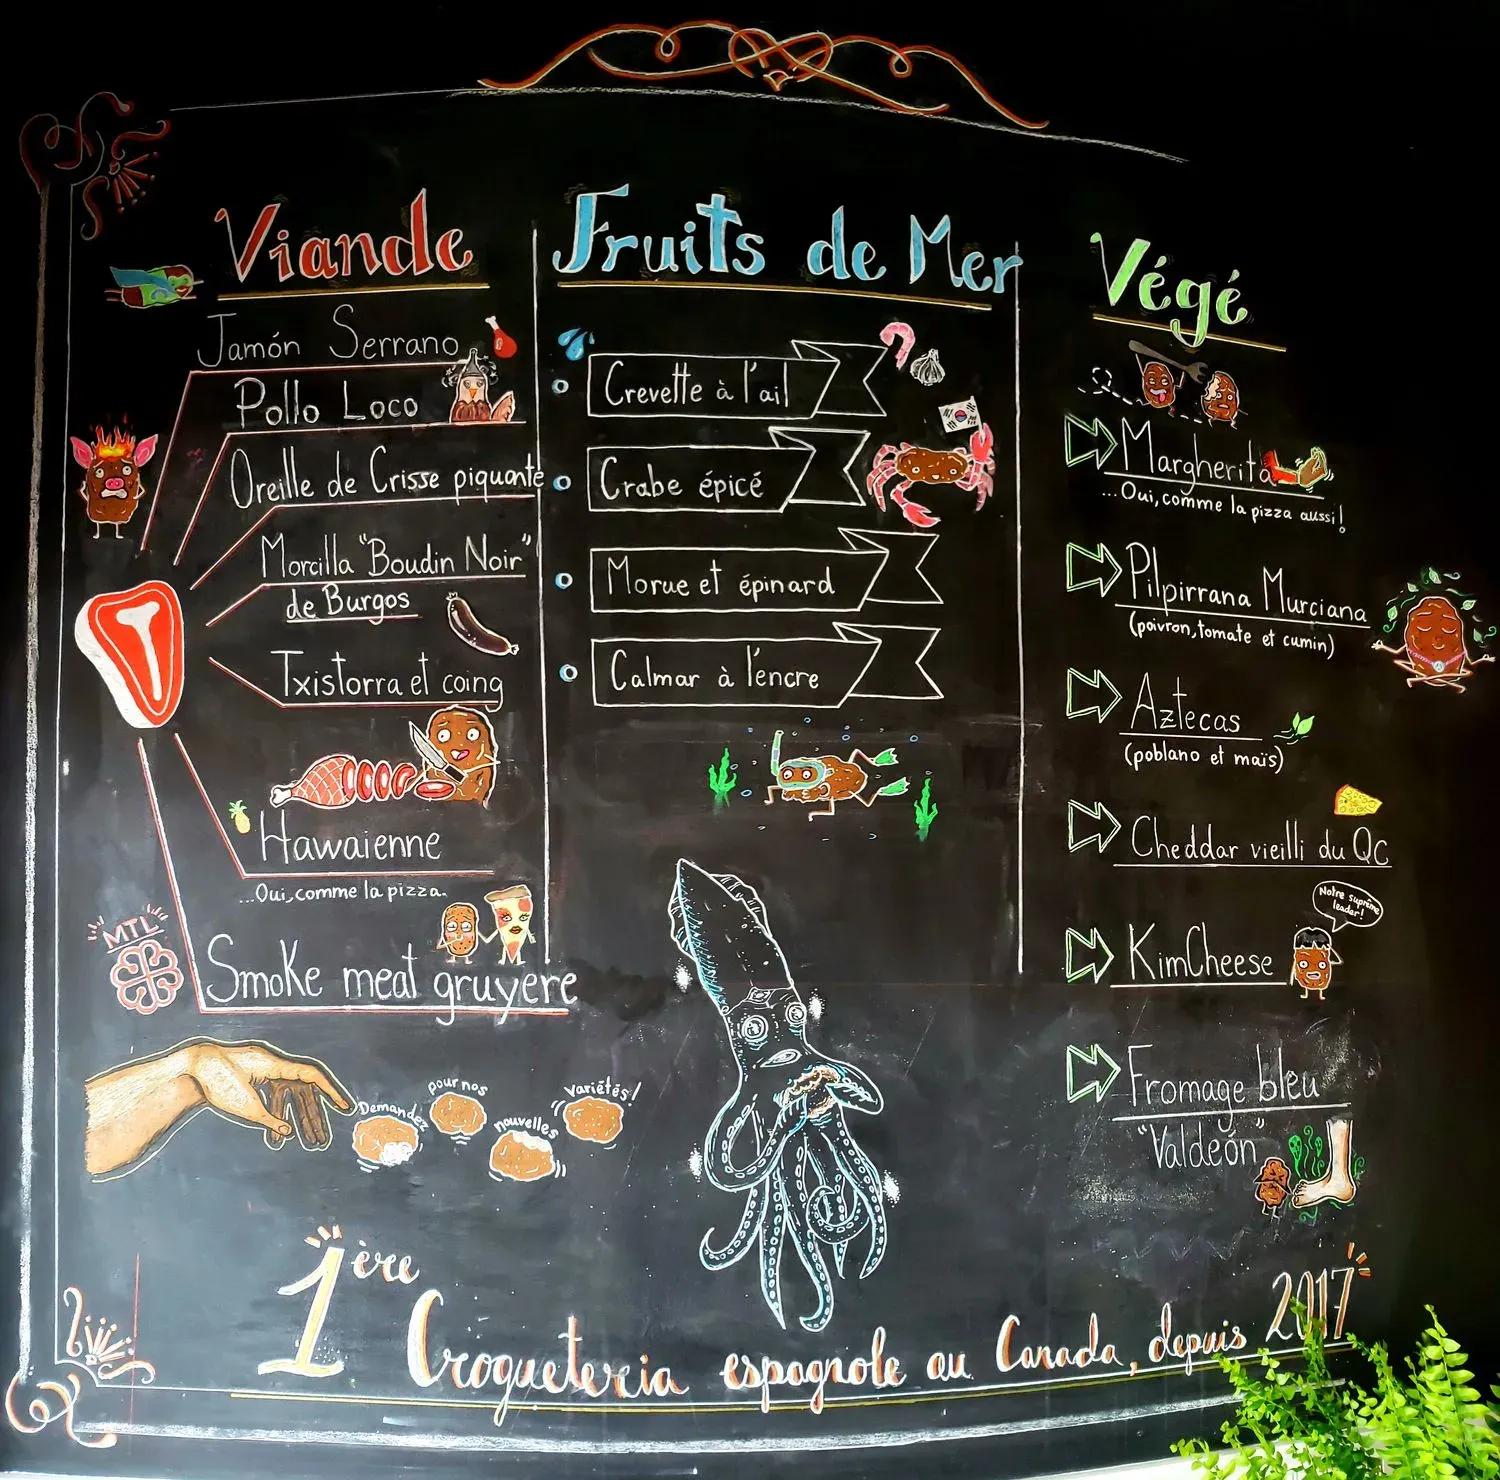 Viande
Jamón Serrano
Pollo Loco
Oreille de Crisse piquante
Morcilla "Boudin Noir"
de Burgos
Txistorra et coing
Hawaienne
...Oui, comme la pizza.
MTL
Smoke meat gruyere
Fruits de Mer
Crevette à l'ail
Crabe épicé
Morue et épinard
Calmar à l'encre
Végé
Margherita
...Oui, comme la pizza aussi!
Pilpirrana Murciana
(poivron, tomate et cumin)
Aztecas
(poblano et maïs)
Cheddar vieilli du Qc
Notre suprême
leader!
KimCheese
Fromage bleu
"Valdeón"
Demandez
pour nos
nouvelles
variétés!
1ère
Croqueteria espagnole au Canada, depuis 2017